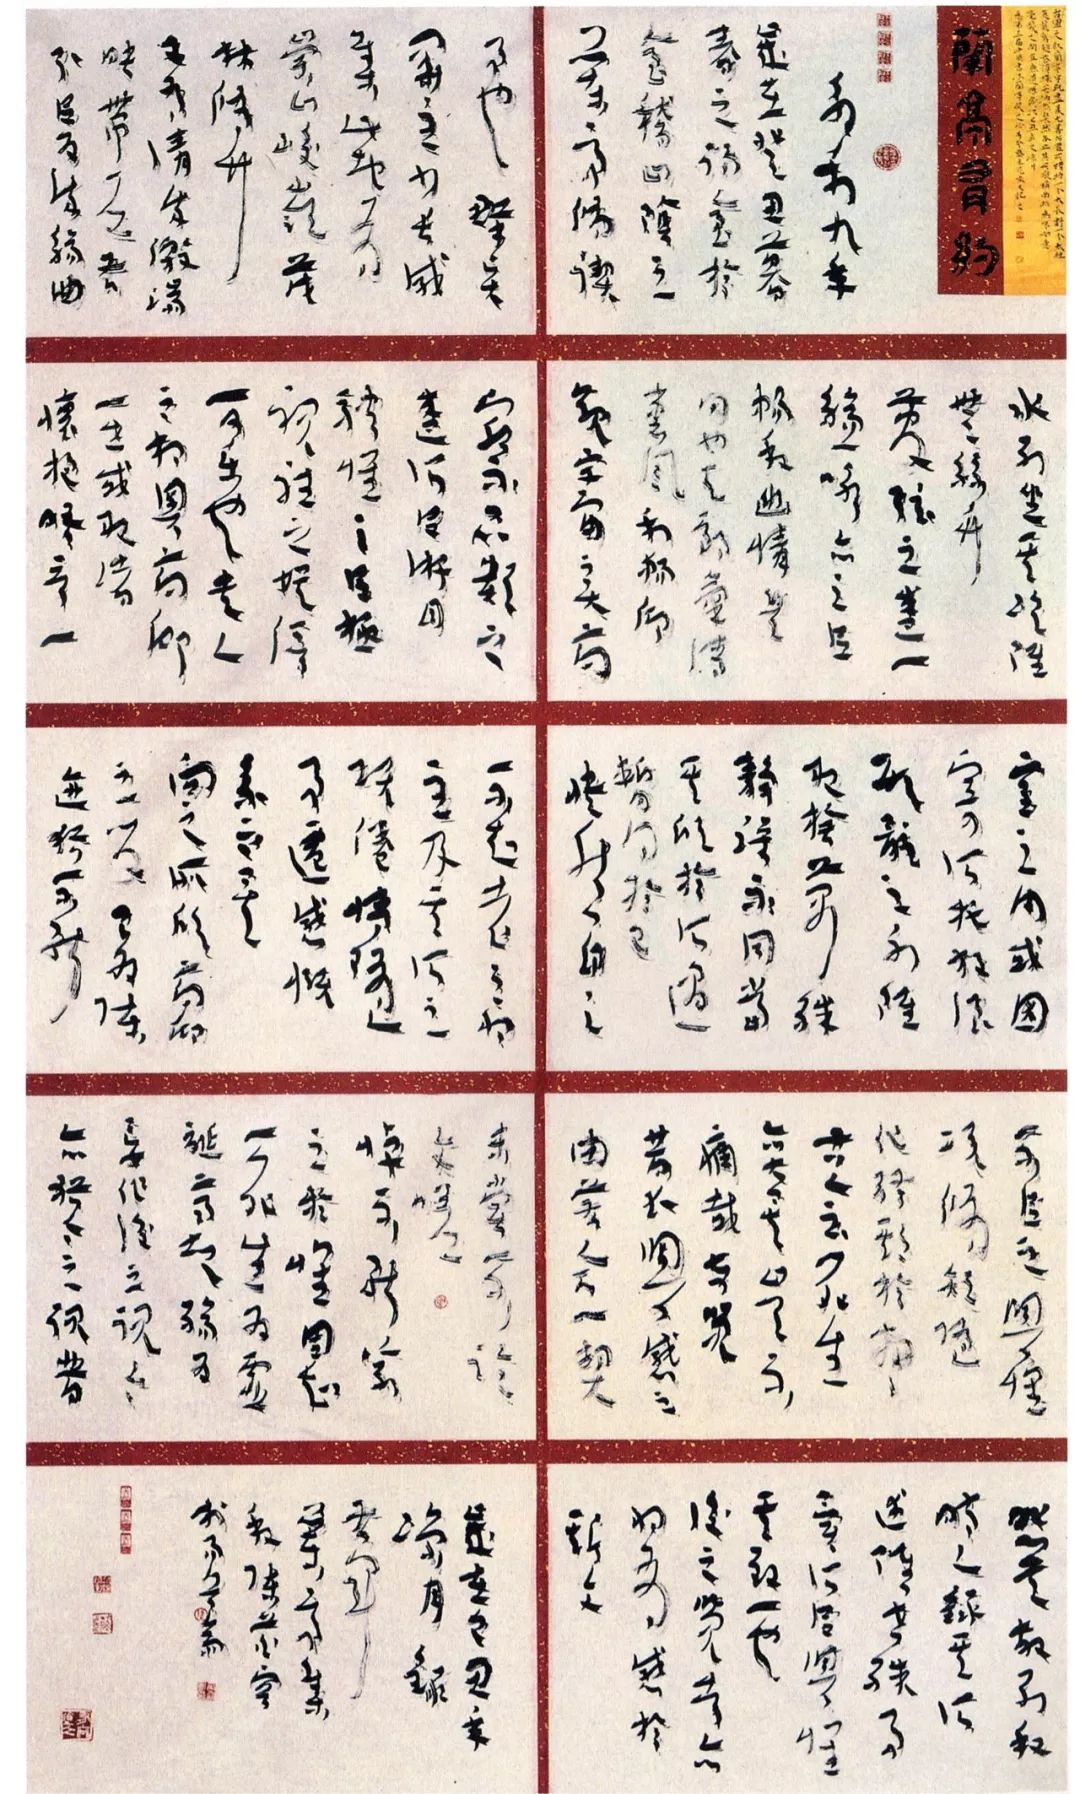 蘭亭
永和九年
歲在癸丑暮
春之初會於
會稽山陰之
蘭亭脩禊
事也群賢
畢至少長咸
集此地有
崇山峻嶺茂
林脩竹
又有清流激湍
映帶左右
引以為流觴曲
水列坐其次雖
無絲竹
管弦之盛一
觴一詠亦足以
暢敘幽情是
日也天朗氣清
惠風和暢仰
觀宇宙之大俯
察品類之
盛所以遊目
騁懷足以極
視聽之娛信
可樂也夫人
之相與俯仰
一世或取諸
懷抱晤言一
室之內或因
寄所託放浪
形骸之外雖
取捨萬殊
靜躁不同當
其欣於所遇
暫得於己
快然自足
不知老之將
至及其所之
既倦情隨
事遷感慨
係之矣
向之所欣俯仰
之間已為陳
迹猶不能
不以之興懷
況脩短隨
化終期於盡
古人云死生
亦大矣豈不
痛哉每覽
昔人興感之
由若合一契
未嘗不臨
文嗟
悼不能喻
之於懷固知
一死生為虛
誕齊彭殤為
妄作後之視今
亦猶今之視昔
悲夫故列敘
時人錄其所
述雖世殊事
異所以興懷
其致一也
後之覽者亦
將有感於
斯文
歲在己丑年
月錄